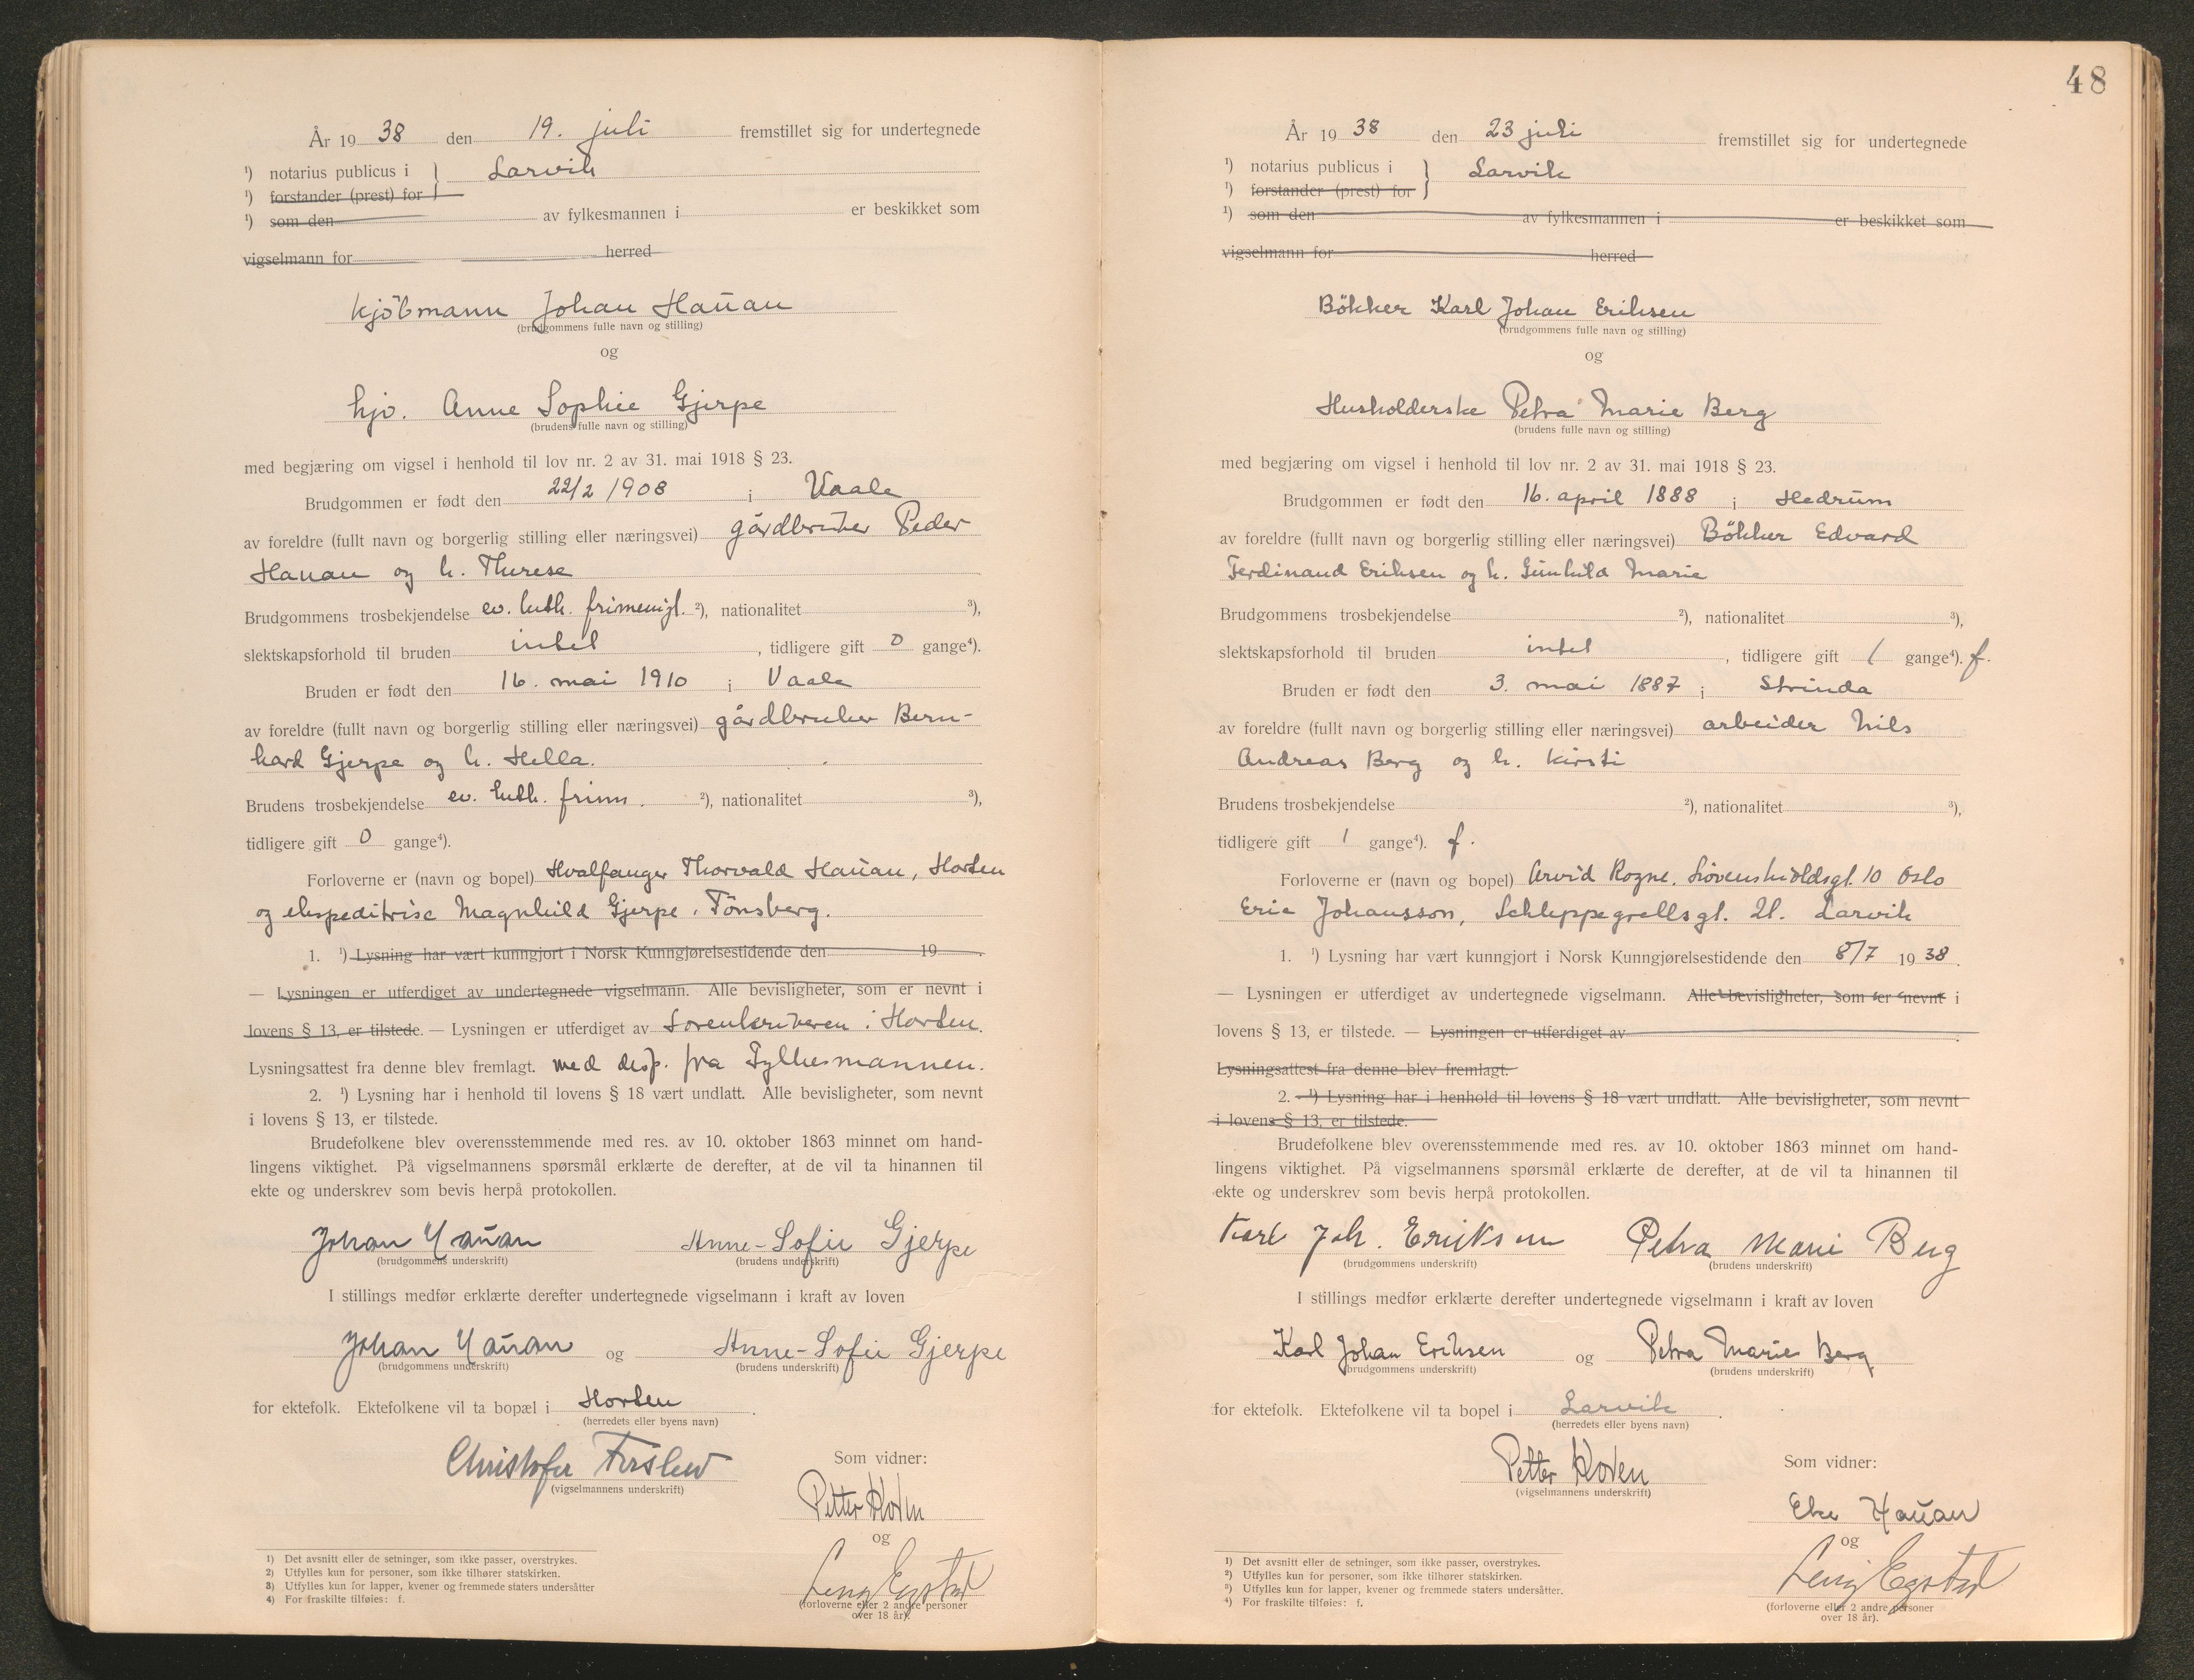 År 19 38 den 19. juli fremstillet sig for undertegnede
¹) notarius publicus i } Larvik
¹) forstander (prest) for
¹) som den av fylkesmannen i er beskikket som
vigselmann for herred
Kjöbmann Johan Hauan
(brudgommens fulle navn og stilling)
og
hjv. Anne Sophie Gjerpe
(brudens fulle navn og stilling)
med begjæring om vigsel i henhold til lov nr. 2 av 31. mai 1918 § 23.
Brudgommen er født den 22/2 1908 i Vaale
av foreldre (fullt navn og borgerlig stilling eller næringsvei) gårdbruker Peder
Hauan og h. Therese
Brudgommens trosbekjendelse ev. luth. frimenigh. ²), nationalitet ³),
slektskapsforhold til bruden intet, tidligere gift 0 gange⁴).
Bruden er født den 16. mai 1910 i Vaale
av foreldre (fullt navn og borgerlig stilling eller næringsvei) gårdbruker Bern-
hard Gjerpe og h. Hella.
Brudens trosbekjendelse ev. luth. frim. ²), nationalitet ³),
tidligere gift 0 gange⁴).
Forloverne er (navn og bopel) Hvalfanger Thorvald Hauan, Horten
og ekspeditrise Magnhild Gjerpe, Tönsberg.
1. ¹) Lysning har vært kunngjort i Norsk Kunngjørelsestidende den 19 .
— Lysningen er utferdiget av undertegnede vigselmann. Alle bevisligheter, som er nevnt i
lovens § 13, er tilstede. — Lysningen er utferdiget av Sorenskriveren i Horten.
Lysningsattest fra denne blev fremlagt. med disp. fra Fylkesmannen.
2. ¹) Lysning har i henhold til lovens § 18 vært undlatt. Alle bevisligheter, som nevnt
i lovens § 13, er tilstede.
Brudefolkene blev overensstemmende med res. av 10. oktober 1863 minnet om hand-
lingens viktighet. På vigselmannens spørsmål erklærte de derefter, at de vil ta hinannen til
ekte og underskrev som bevis herpå protokollen.
Johan Hauan Anne-Sofie Gjerpe
(brudgommens underskrift) (brudens underskrift)
I stillings medfør erklærte derefter undertegnede vigselmann i kraft av loven
Johan Hauan og Anne-Sofie Gjerpe
(brudgommens underskrift) (brudens underskrift)
for ektefolk. Ektefolkene vil ta bopæl i Horten.
(herredets eller byens navn)
Christofer Forslew
(vigselmannens underskrift)
Som vidner:
Petter Hoven
og
Egstad
(forloverne eller 2 andre personer
over 18 år).
1) Det avsnitt eller de setninger, som ikke passer, overstrykes.
2) Utfylles kun for personer, som ikke tilhører statskirken.
3) Utfylles kun for lapper, kvener og fremmede staters undersåtter
4) For fraskilte tilføies: f.
48
År 19 38 den 23 juli fremstillet sig for undertegnede
¹) notarius publicus i } Larvik
¹) forstander (prest) for
¹) som den av fylkesmannen i er beskikket som
vigselmann for herred
Bökker Karl Johan Eriksen
(brudgommens fulle navn og stilling)
og
Husholderske Petra Marie Berg
(brudens fulle navn og stilling)
med begjæring om vigsel i henhold til lov nr. 2 av 31. mai 1918 § 23.
Brudgommen er født den 16. april 1888 i Hedrum
av foreldre (fullt navn og borgerlig stilling eller næringsvei) Bökker Edvard
Ferdinand Eriksen og h. Gunhild Marie
Brudgommens trosbekjendelse ²), nationalitet ³),
slektskapsforhold til bruden intet, tidligere gift 1 gange⁴). f.
Bruden er født den 3. mai 1887 i Strinda
av foreldre (fullt navn og borgerlig stilling eller næringsvei) arbeider Nils
Andreas Berg og h. Kirsti
Brudens trosbekjendelse ²), nationalitet ³),
tidligere gift 1 gange⁴). f.
Forloverne er (navn og bopel) Arvid Rogne, Lövenskioldsgt. 10 Oslo
Eric Johansson, Schleppegrellsgt. 21. Larvik
1. ¹) Lysning har vært kunngjort i Norsk Kunngjørelsestidende den 8/7 19 38.
— Lysningen er utferdiget av undertegnede vigselmann. Alle bevisligheter, som er nevnt i
lovens § 13, er tilstede. — Lysningen er utferdiget av .
Lysningsattest fra denne blev fremlagt.
2. ¹) Lysning har i henhold til lovens § 18 vært undlatt. Alle bevisligheter, som nevnt
i lovens § 13, er tilstede.
Brudefolkene blev overensstemmende med res. av 10. oktober 1863 minnet om hand-
lingens viktighet. På vigselmannens spørsmål erklærte de derefter, at de vil ta hinannen til
ekte og underskrev som bevis herpå protokollen.
Karl Joh. Eriksen Petra Marie Berg
(brudgommens underskrift) (brudens underskrift)
I stillings medfør erklærte derefter undertegnede vigselmann i kraft av loven
Karl Johan Eriksen og Petra Marie Berg
(brudgommens underskrift) (brudens underskrift)
for ektefolk. Ektefolkene vil ta bopel i Larvik.
(herredets eller byens navn)
Petter Hoven
(vigselmannens underskrift)
Som vidner:
Hauan
og
Egstad
(forloverne eller 2 andre personer
over 18 år).
1) Det avsnitt eller de setninger, som ikke passer, overstrykes.
2) Utfylles kun for personer, som ikke tilhører statskirken.
3) Utfylles kun for lapper, kvener og fremmede staters undersåtter.
4) For fraskilte tilføies: f.